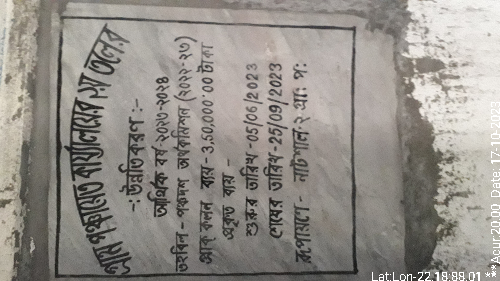 গ্রাম পঞ্চায়েত কার্য্যালয়ের ২য় তলের
-: উন্নতিকরণ :-
আর্থিক বর্ষ-২০২৩-২০২৪
তহবিল - পঞ্চদশ অর্থকমিশন (২০২২-২৩)
প্রাক্ কলন ব্যয় - 3,50,000.00 টাকা
প্রকৃত ব্যয় -
শুরুর তারিখ - 05/06/2023
শেষের তারিখ - 25/09/2023
রূপায়ণে - নাটশাল ২ গ্রাঃ পঃ
Lat:Lon-22.19:88.01
***Acur20.00, Date: 17-10-2023